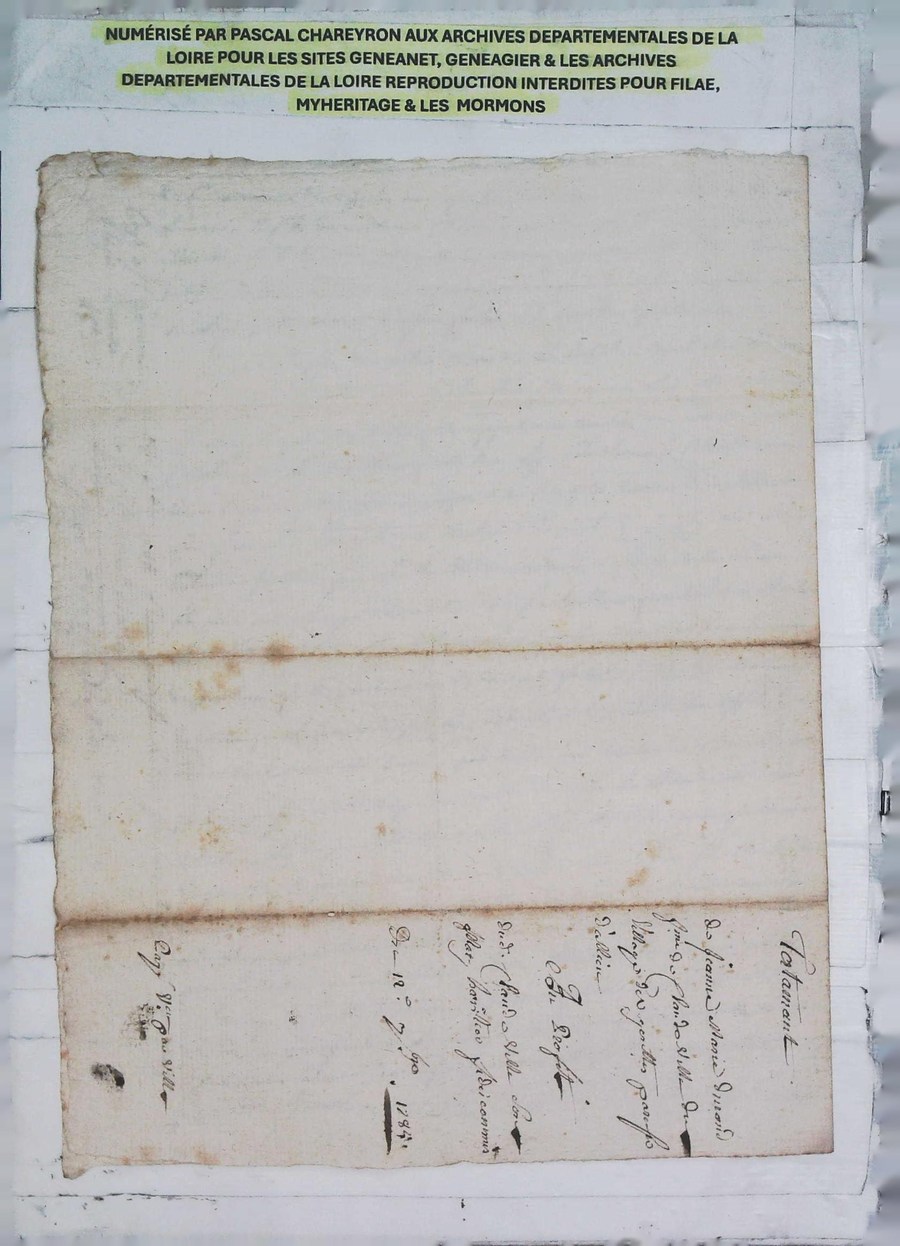 NUMÉRISÉ PAR PASCAL CHAREYRON AUX ARCHIVES DEPARTEMENTALES DE LA
LOIRE POUR LES SITES GENEANET, GENEAGIER & LES ARCHIVES
DEPARTEMENTALES DE LA LOIRE REPRODUCTION INTERDITES POUR FILAE,
MYHERITAGE & LES MORMONS
Testament
De jeanne Marie Durand
fme de Claude Ville du
Village de
D'allieu
Au Profit
Dud. Claude Ville son
héritier fideicommis
Du 12e 7bre
Ville